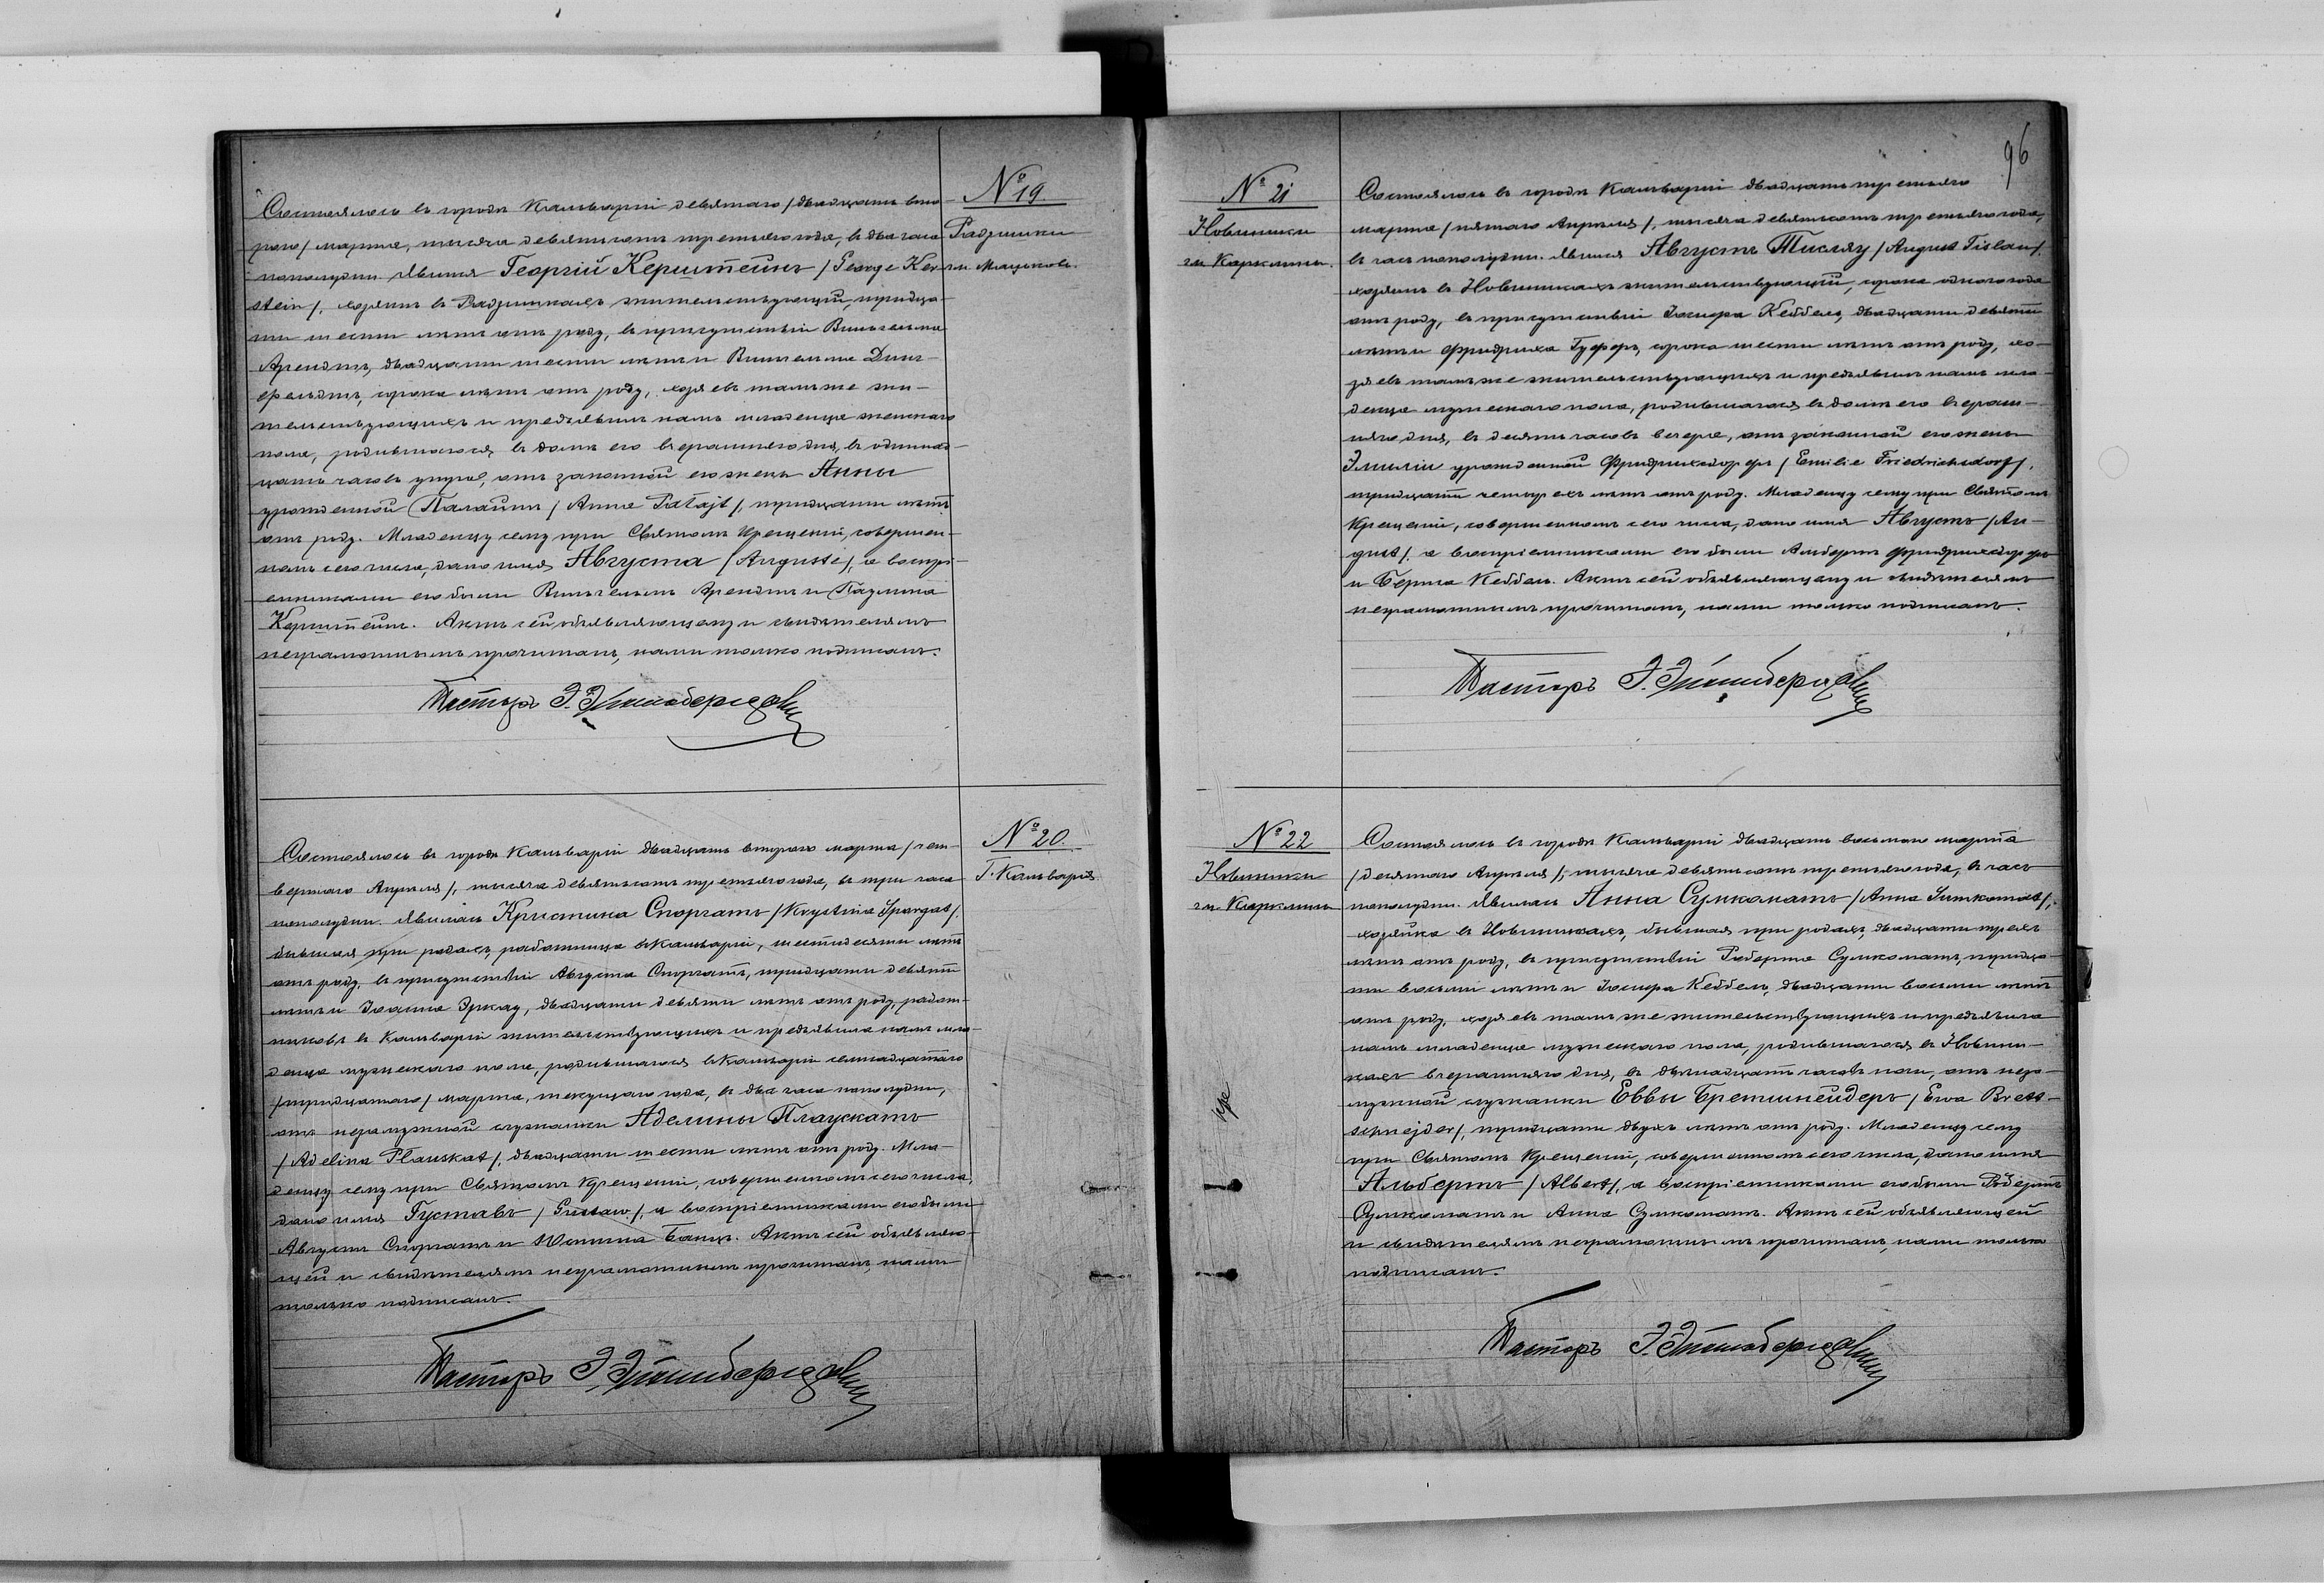 № 19.
Радзишки
гм. Мацьковъ.
Состоялось въ городѣ Кальваріи девятаго /двадцать вто-
раго/ марта, тысяча девятьсотъ третьяго года, въ два часа
пополудни. Явился Георгій Керштейнъ / George Ker-
stein /, хозяинъ въ Радзишкахъ жительствующій, тридца-
ти шести лѣтъ отъ роду, въ присутствіи Вильгельма
Арендтъ, двадцати шести лѣтъ и Вильгельма Динг-
фельдтъ, сорока лѣтъ отъ роду, хозяевъ тамъ же жи-
тельствующихъ и предъявилъ намъ младенца женскаго
пола, родившагося въ домѣ его вчерашняго дня, въ одиннад-
цать часовъ утра, отъ законной его жены Анны
урожденной Палайтъ / Anna Patajt /, тридцати лѣтъ
отъ роду. Младенцу сему при Святомъ Крещеніи, совершен-
номъ сего числа, дано имя Августа / Auguste /, а воспрі-
емниками его были Вильгельмъ Арендтъ и Паулина
Керштейнъ. Актъ сей объявляющему и свидѣтелямъ
неграмотнымъ прочитанъ, нами только подписанъ.
Пасторъ Э.
№ 20.
Г. Кальварія.
Состоялось въ городѣ Кальваріи двадцать втораго марта / чет-
вертаго Апрѣля /, тысяча девятьсотъ третьяго года, въ три часа
пополудни. Явилась Кристина Споргатъ / Krystina Spargat /,
бывшая при родахъ, работница въ Кальваріи, шестидесяти лѣтъ
отъ роду, въ присутствіи Августа Споргатъ, тридцати девяти
лѣтъ и Іоанна Эркау, двадцати девяти лѣтъ отъ роду, работ-
никовъ въ Кальваріи жительствующихъ и предъявила намъ мла-
денца мужескаго пола, родившагося въ Кальваріи семнадцатаго
/тридцатаго/ марта, текущаго года, въ два часа пополудни,
отъ незамужной служанки Аделины Плаускатъ
/ Adelina Plauskat /, двадцати шести лѣтъ отъ роду. Мла-
денцу сему при Святомъ Крещеніи, совершенномъ сего числа,
дано имя Густавъ / Gustaw /, а воспріемниками его были
Августъ Споргатъ и Юстина Банцъ. Актъ сей объявляю-
щей и свидѣтелямъ неграмотнымъ прочитанъ, нами
только подписанъ.
Пасторъ Э.
96
№ 21
Новинники
гм. Карклины.
Состоялось въ городѣ Кальваріи двадцать третьяго
марта / пятаго Апрѣля /, тысяча девятьсотъ третьяго года,
въ часъ пополудни. Явился Августъ Тислау / August Tislau /,
хозяинъ въ Новинникахъ жительствующій, сорока одного года
отъ роду, въ присутствіи Іосифа Кеббель, двадцати девяти
лѣтъ и Фридриха Гуферъ, сорока шести лѣтъ отъ роду, хо-
зяевъ тамъ же жительствующихъ и предъявилъ намъ мла-
денца мужескаго пола, родившагося въ домѣ его вчераш-
няго дня, въ десять часовъ вечера, отъ законной его жены
Эмиліи урожденной Фридрихсдорфъ / Emilie Friedrichsdorf /,
тридцати четырехъ лѣтъ отъ роду. Младенцу сему при Святомъ
Крещеніи, совершенномъ сего числа, дано имя Августъ / Au-
gust /, а воспріемниками его были Альбертъ Фридрихсдорфъ
и Берта Кеббель. Актъ сей объявляющему и свидѣтелямъ
неграмотнымъ прочитанъ, нами только подписанъ.
Пасторъ Э.
№ 22
Новинники
гм. Карклины
Состоялось въ городѣ Кальваріи двадцать восьмаго марта
/десятаго Апрѣля/, тысяча девятьсотъ третьяго года, въ часъ
пополудни. Явилась Анна Сумкоматъ / Anna Sumkomat /,
хозяйка въ Новинникахъ, бывшая при родахъ, двадцати трехъ
лѣтъ отъ роду, въ присутствіи Роберта Сумкоматъ, тридца-
ти восьми лѣтъ и Іосифа Кеббель, двадцати восьми лѣтъ
отъ роду, хозяевъ тамъ же жительствующихъ и предъявила
намъ младенца мужескаго пола, родившагося въ Новинни-
кахъ вчерашняго дня, въ двѣнадцать часовъ ночи, отъ неза-
мужной служанки Еввы Бретшнейдеръ / Ewa Brett-
schnejder /, тридцати двухъ лѣтъ отъ роду. Младенцу сему
при Святомъ Крещеніи, совершенномъ сего числа, дано имя
Альбертъ / Albert /, а воспріемниками его были Робертъ
Сумкоматъ и Анна Сумкоматъ. Актъ сей объявляющей
и свидѣтелямъ неграмотнымъ прочитанъ, нами только
подписанъ.
Пасторъ Э.